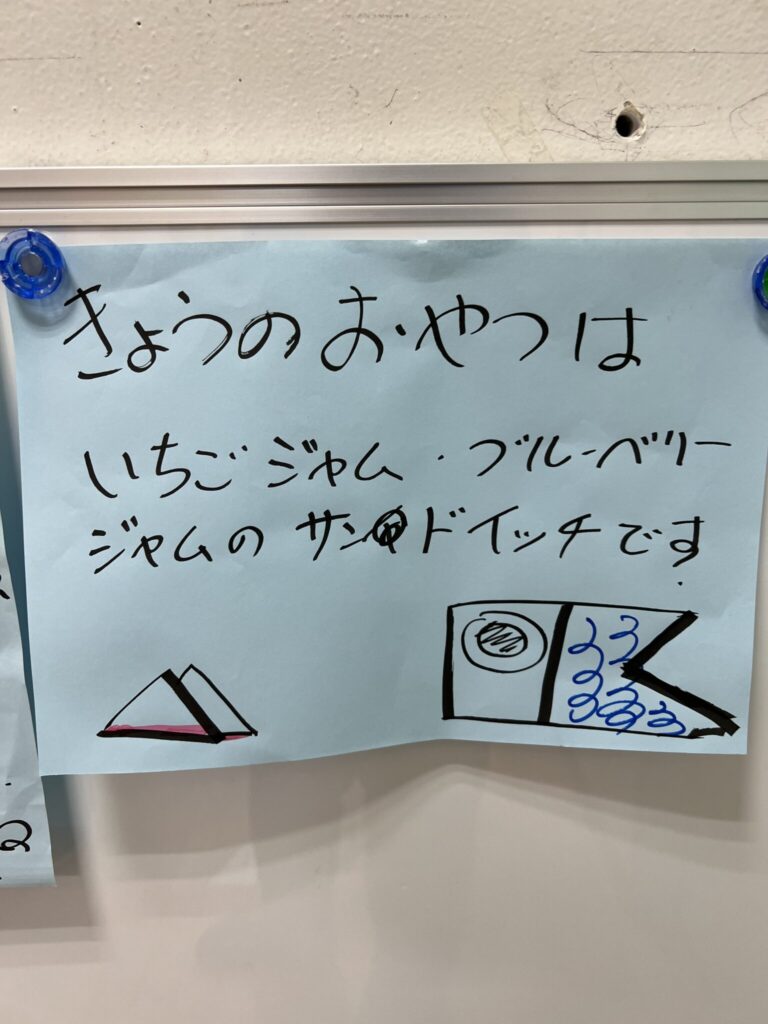 きょうのおやつは
いちごジャム・ブルーベリー
ジャムのサンドイッチです